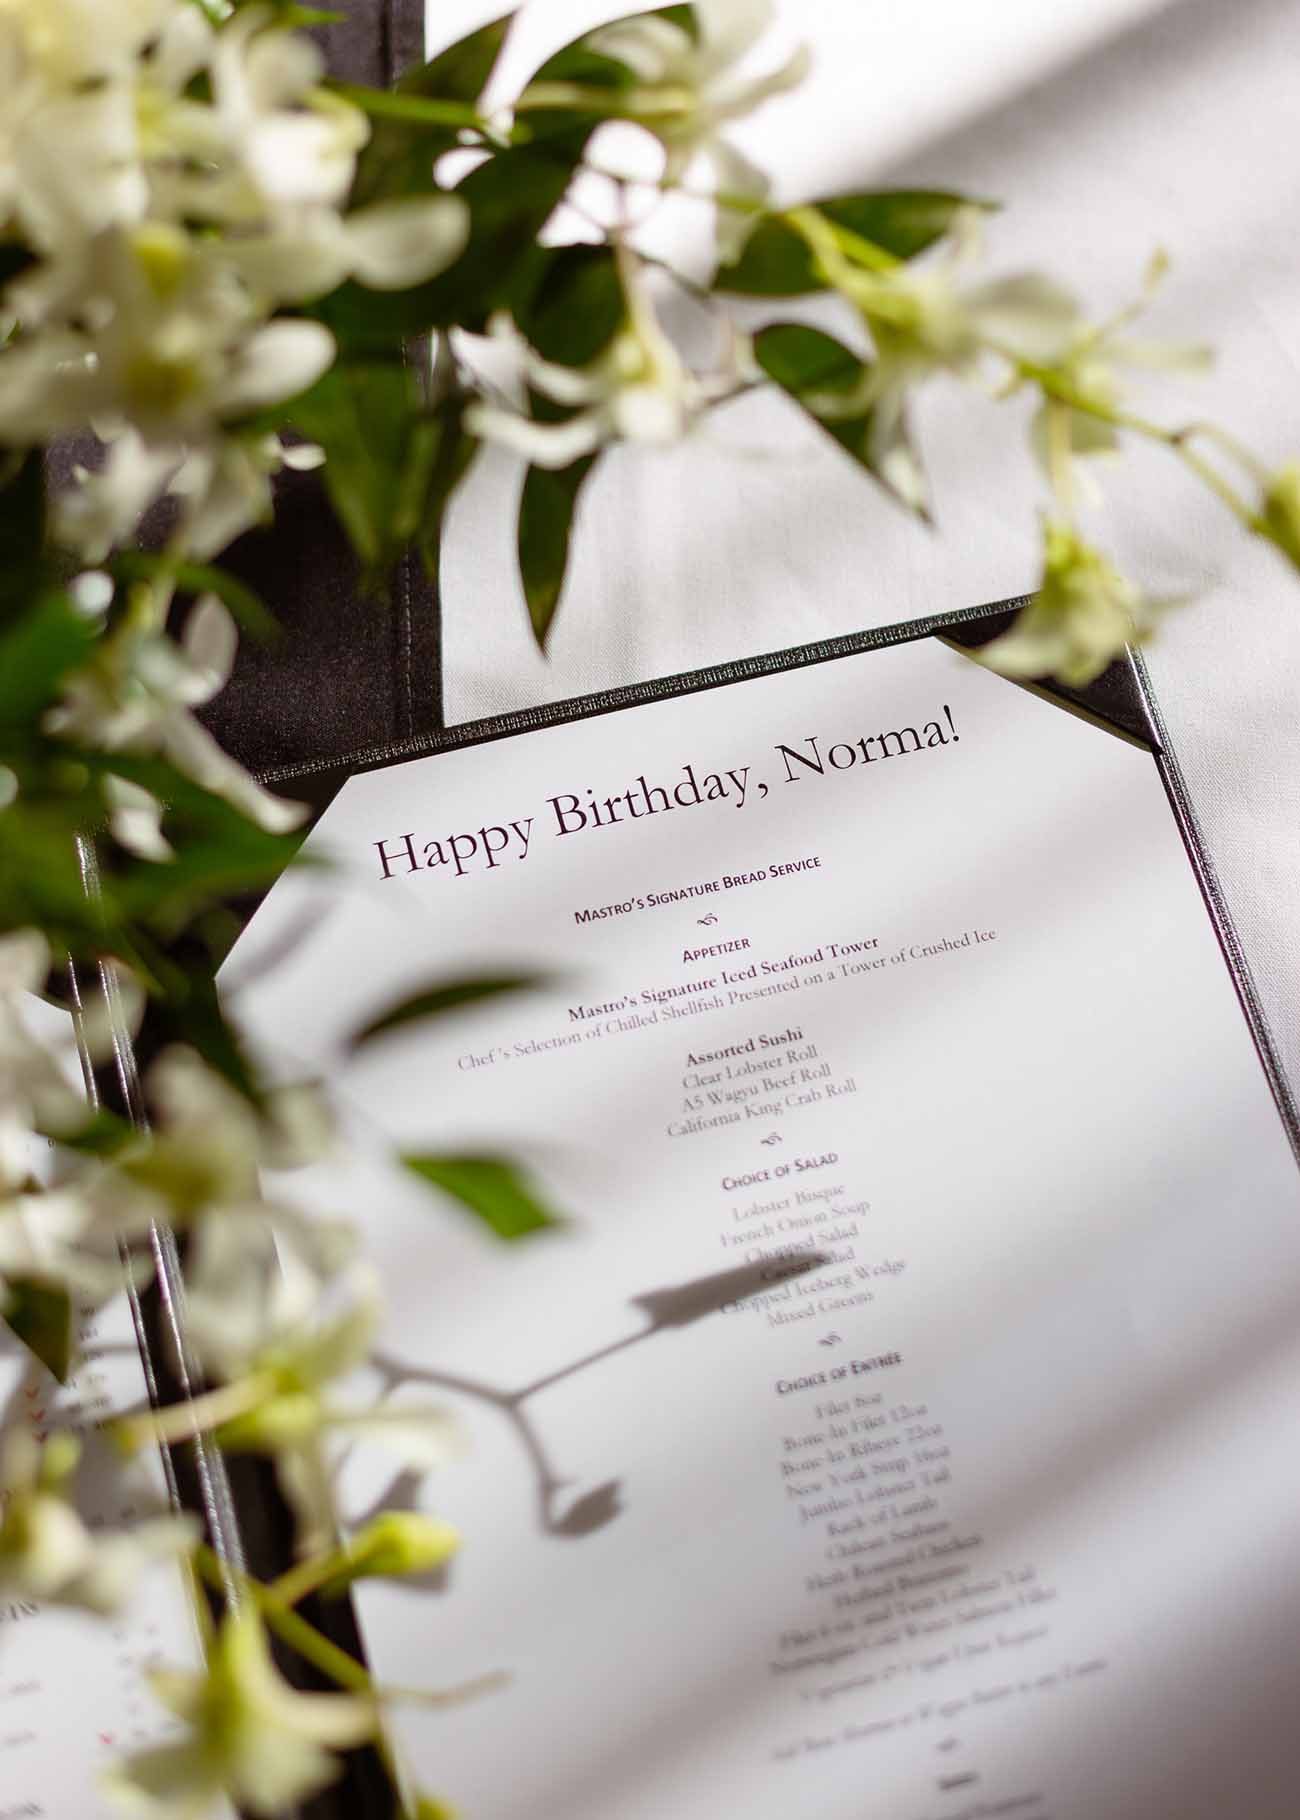 Happy Birthday, Norma!
Mastro's Signature Bread Service
Appetizer
Mastro's Signature Iced Seafood Tower
Chef's Selection of Chilled Shellfish Presented on a Tower of Crushed Ice
Assorted Sushi
Clear Lobster Roll
A5 Wagyu Beef Roll
California King Crab Roll
Choice of Salad
Lobster Bisque
French Onion Soup
Chopped Salad
Caesar Salad
Chopped Iceberg Wedge
Mixed Greens
Choice of Entrée
Filet 8oz
Bone-In Filet 12oz
Bone-In Ribeye 22oz
New York Strip 16oz
Jumbo Lobster Tail
Rack of Lamb
Chilean Seabass
Herb Roasted Chicken